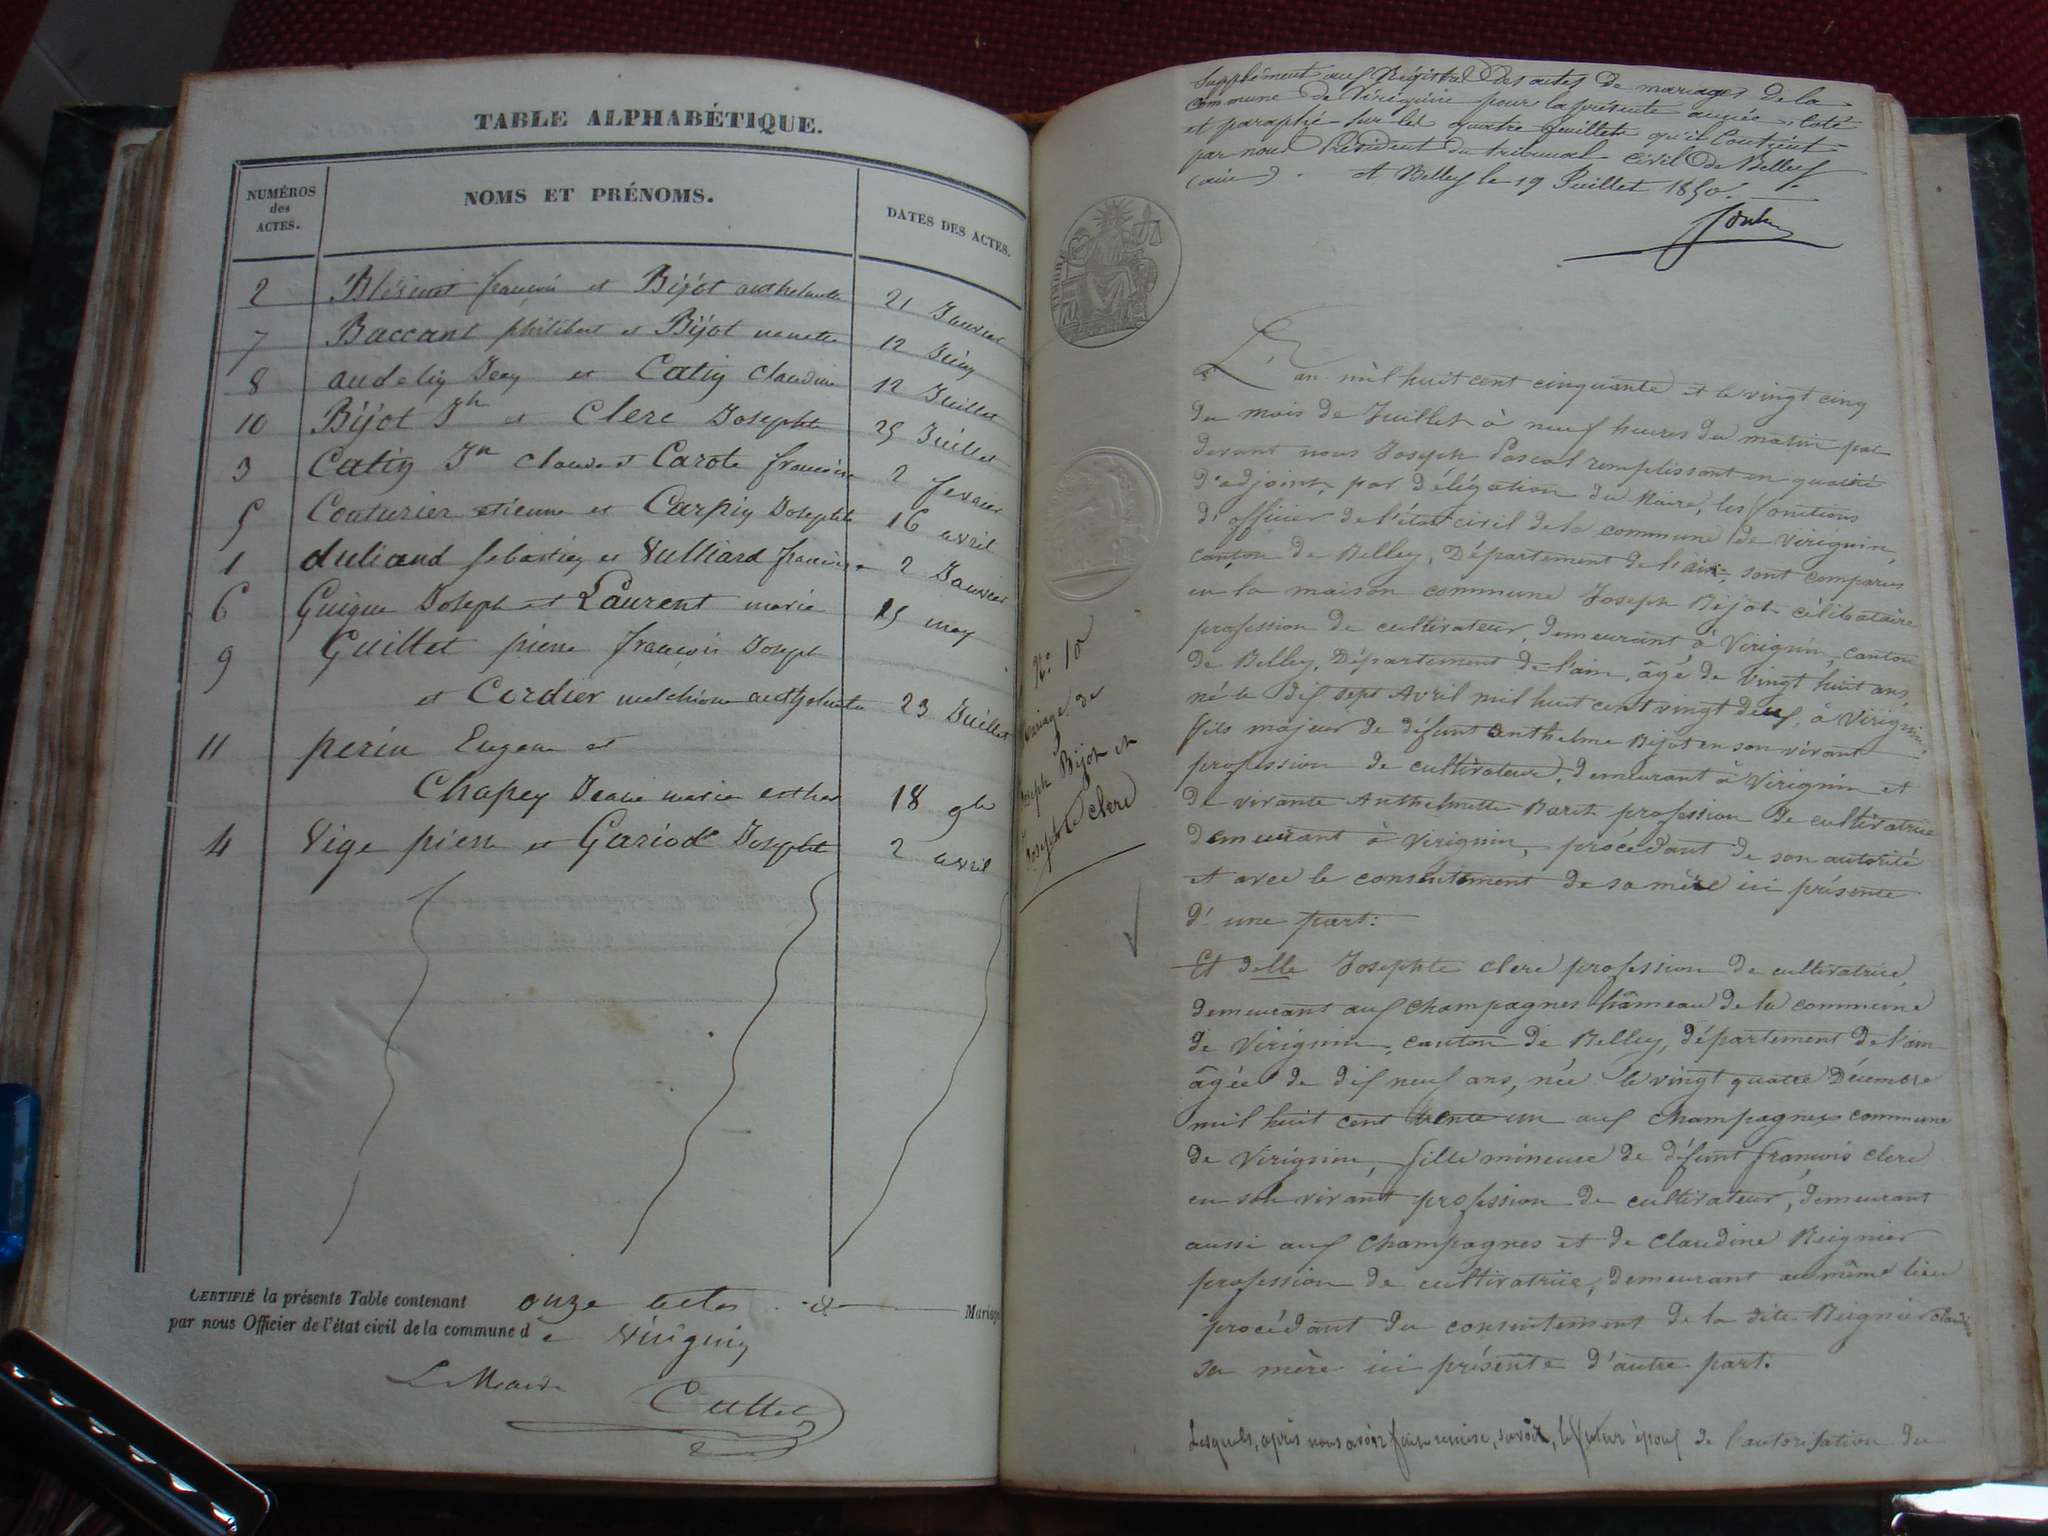 TABLE ALPHABÉTIQUE.
NUMÉROS des ACTES.
NOMS ET PRÉNOMS.
DATES DES ACTES.
2 françois et Bijot anthelmette 21 Janvier
7 Baccant philibert et Bijot 12 Juin
8 audelin Jean et Catin Claudine 12 Juillet
10 Bijot Jh et Clerc Josephte 25 Juillet
3 Catin Jn Claude et Carote francoise 2 fevrier
5 Couturier etienne et Carpin Josephte 16 avril
1 sebastien et Vulliard francoise 2 Janvier
6 Guigue Joseph et Laurent marie 15 may
9 Guillet pierre françois Joseph
et Cordier melchione anthelmette 23 Juillet
11 perin Eugene et
Chapey Jeane marie esther 18 9bre
4 Vige pierre et Gariod Josephte 2 avril
CERTIFIÉ la présente Table contenant onze actes de Mariage
par nous Officier de l'état civil de la commune d e Virignin
Le Maire
Cullet
Supplément aux Régistre des actes de mariages de la
commune de Virignin pour la présente année, coté
et paraphé sur les quatre feuillets qu'il contient
par nous Président du tribunal civil de Belley
(ain). A Belley le 19 Juillet 1850.
TIMBRE
No. 10
Mariage de
Joseph Bijot et
Josephte Clerc
L'an mil huit cent cinquante et le vingt cinq
du mois de Juillet à neuf heures du matin par
devant nous Joseph Pascal remplissant en qualité
d'adjoint, par délégation du Maire, les fonctions
d'officier de l'état civil de la commune de Virignin,
canton de Belley, Département de l'ain, sont comparus
en la maison commune Joseph Bijot célibataire
profession de cultivateur, demeurant à Virignin, canton
de Belley, Département de l'ain, âgé de vingt huit ans,
né le dix sept Avril mil huit cent vingt deux, à Virignin,
fils majeur de défunt Anthelme Bijot en son vivant
profession de cultivateur, demeurant à Virignin et
de vivante Anthelmette Barit profession de cultivatrice
demeurant à Virignin, procédant de son autorité
et avec le consentement de sa mère ici présente
d'une part:
Et delle Josephte clerc profession de cultivatrice,
demeurant aux Champagnes hâmeau de la commune
de Virignin, canton de Belley, département de l'ain
âgée de dix neuf ans, née le vingt quatre Décembre
mil huit cent trente un aux Champagnes commune
de Virignin, fille mineure de défunt françois clerc
en son vivant profession de cultivateur, demeurant
aussi aux Champagnes et de claudine Reignier
profession de cultivatrice, demeurant au même lieu
procédant du consentement de la dite Reignier claudine
sa mère ici présente d'autre part.
Lesquels, après nous avoir faite remise, savoir, le futur époux de l'autorisation du